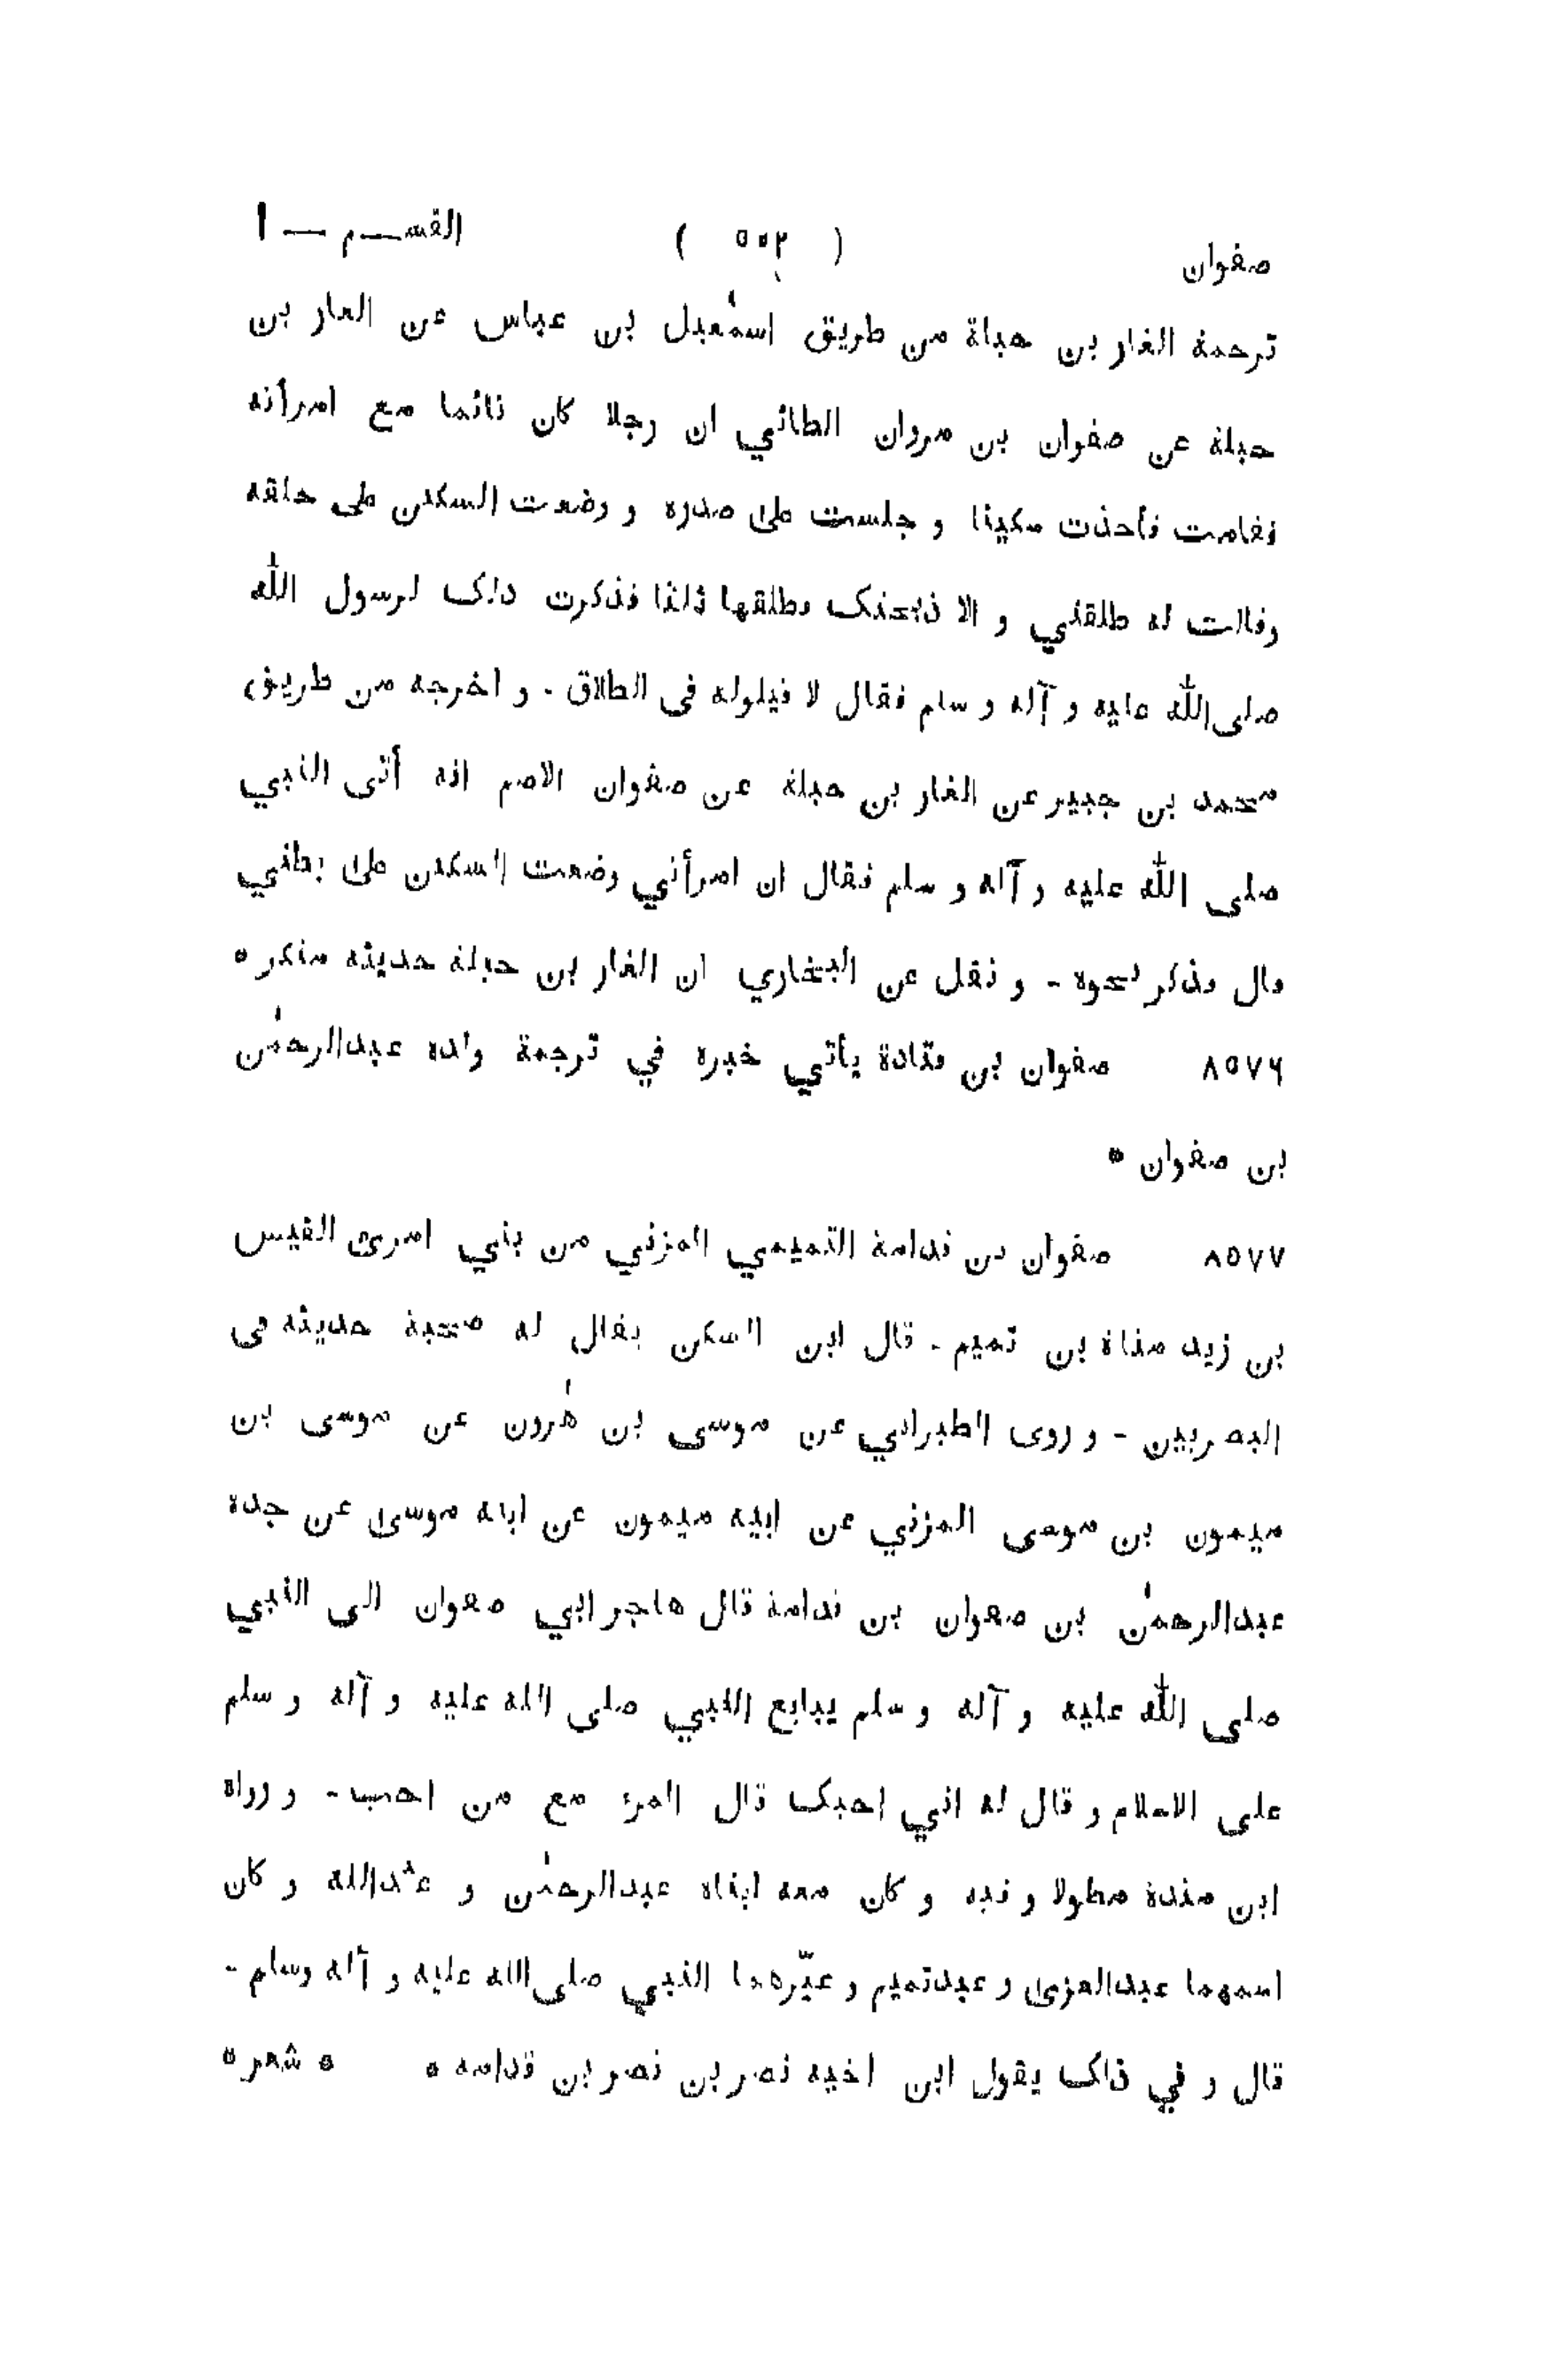 صفوان ( ٥٠٢ ) القســم — ا
ترجمة الغار بن جبلة من طريق اسمٰعيل بن عياس عن الغار بن
جبلة عن صفوان بن مروان الطائي ان رجلا كان نائما مع امرأته
فقامت فأخذت سكينا و جلست على صدره و وضعت السكين على حلقه
وقالت له طلقني و الا ذبحتك فطلقها ثلثا فذكرت ذلك لرسول الله
صلى الله عليه و آله و سلم فقال لا قيلولة فى الطلاق - و اخرجه من طريق
محمد بن جبير عن الغار بن جبلة عن صفوان الاصم انه أتى النبي
صلى الله عليه و آله و سلم فقال ان امرأتي وضعت السكين على بطني
قال فذكر نحوه - و نقل عن البخاري ان الغار بن جبلة حديثه منكر ٥
٨٥٧٦ صفوان بن قتادة يأتي خبره في ترجمة ولده عبدالرحمٰن
بن صفوان ٥
٨٥٧٧ صفوان بن قدامة التميمي المزني من بني امرئ القيس
بن زيد مناة بن تميم - قال ابن السكن يقال له صحبة حديثه فى
البصريين - و روى الطبراني عن موسى بن هٰرون عن موسى بن
ميمون بن موسى المزني عن ابيه ميمون عن ابيه موسى عن جده
عبدالرحمٰن بن صفوان بن قدامة قال هاجر ابي صفوان الى النبي
صلى الله عليه و آله و سلم يبايع النبي صلى الله عليه و آله و سلم
على الاسلام و قال له اني احبك قال المرء مع من احب - و رواه
ابن مندة مطولا و فيه و كان معه ابناه عبدالرحمٰن و عبدالله و كان
اسمهما عبدالعزى و عبدتميم و غيّرهما النبي صلى الله عليه و آله وسلم -
قال و في ذلك يقول ابن اخيه نصر بن نصر بن قدامه ٥ ٥ شعر ٥